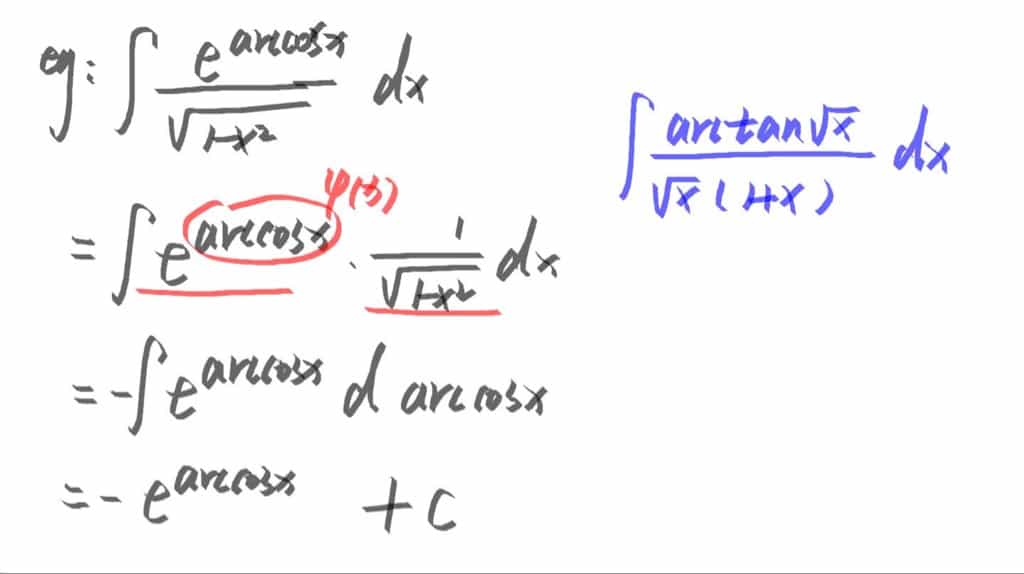 eg: ∫ e^{arccosx} / √(1-x²) dx
= ∫ e^{arccosx} · 1/√(1-x²) dx
φ(x)
= -∫ e^{arccosx} d arccosx
= - e^{arccosx} + C
∫ arctan√x / √x(1+x) dx